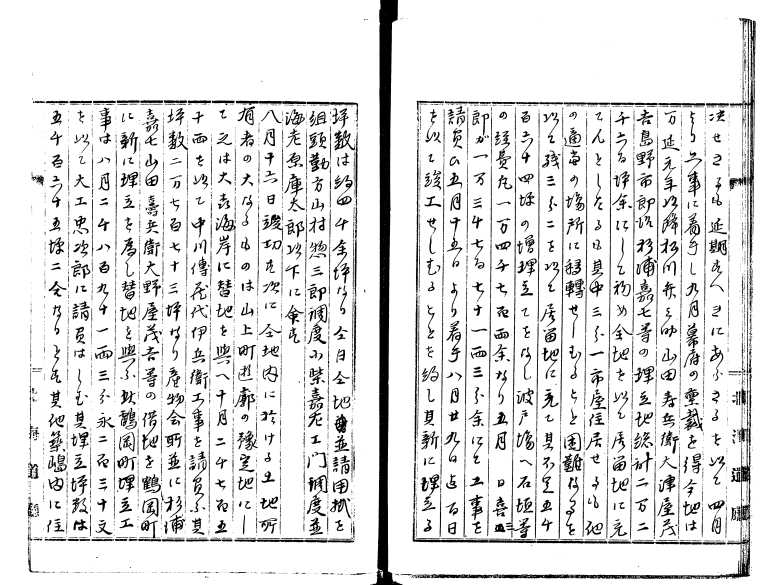 決せさるも延期すへきにあらさるを以て四月
より工事に着手し九月幕府の裁を得今地は
万延元年以降松川弁之助山田寿兵衛大津屋茂
吉島野市郎治杉浦嘉七等の埋立地総計二万二
千六百坪余にして初め全地を以て居留地に充
てんとしたるも其中三分一市屋住居せるも他
の適当の場所に移転せしむること困難なるを
以て残三分二を以て居留地に充て其不足五千
百六十四坪の増埋立てをなし波戸場へ石垣等
の経費凡一万四千七百両余なり五月 日喜三
郎が一万三千七百七十一両三分余にて工事を
請負ひ五月十五日より着手八月廿九日迄百日
を以て竣工せしむることを約し其新に埋立る
坪数は約四千余坪なり全日全地並請用掛を
組頭勤方山村惣三郎調度小柴嘉左エ門調度並
海老原庫太郎以下に命す
八月十六日竣功す次に全地内に於ける土地所
有者の大なるものは山上町遊廓の予定地にし
て之は大森海岸に替地を与へ十月二千七百五
十両を以て中川伝蔵代伊兵衛工事を請負ふ其
坪数二万七百七十三坪なり産物会所並に杉浦
嘉七山田寿兵衛大野屋茂吉等の借地を鶴岡町
に新に埋立を為し替地を与ふ此鶴岡町埋立工
事は八月二千八百九十一両三分永二百三十文
を以て大工忠次郎に請負はしむ其埋立坪数は
五千百六十五坪二合なりとす其他築嶋内に住